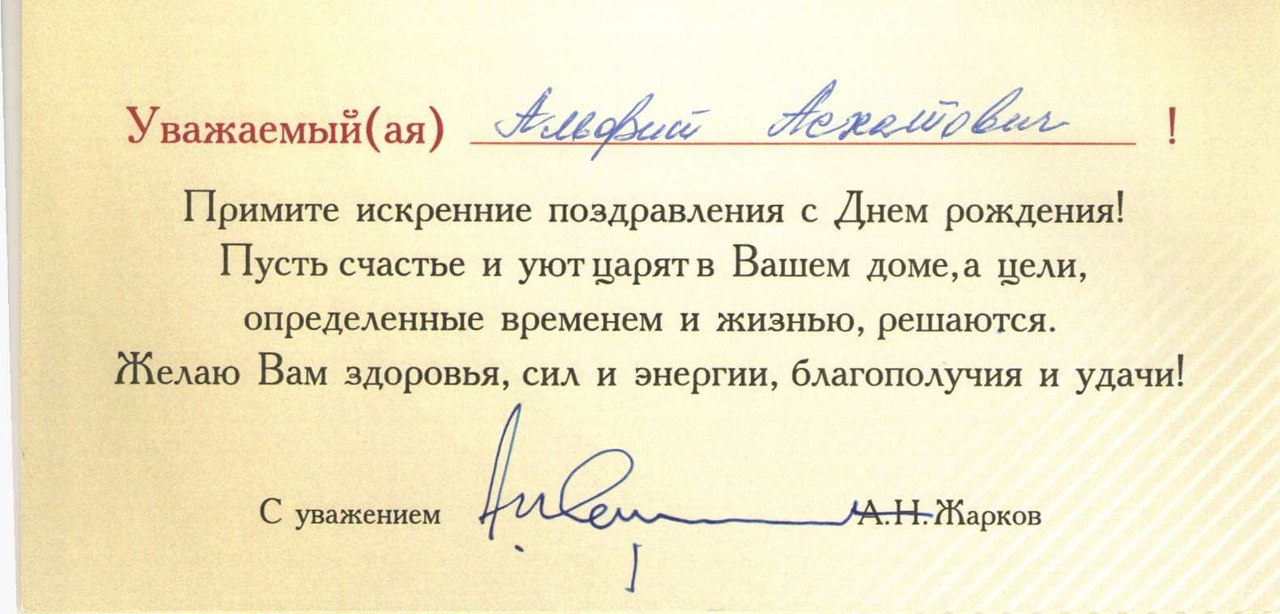 Уважаемый(ая) Альфит Асхатович !
Примите искренние поздравления с Днем рождения!
Пусть счастье и уют царят в Вашем доме, а цели,
определенные временем и жизнью, решаются.
Желаю Вам здоровья, сил и энергии, благополучия и удачи!
С уважением А.Н. Жарков